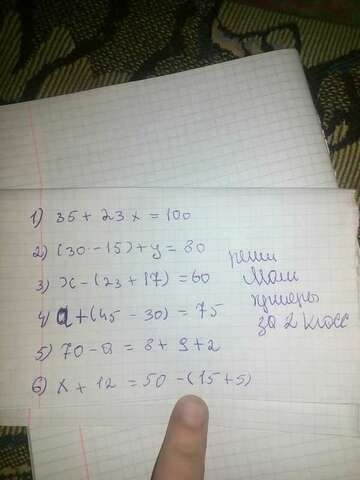 1) 35 + 23 x = 100
2) (30 - 15) + y = 80
3) x - (23 + 17) = 60
4) a + (45 - 30) = 75
5) 70 - a = 8 + 9 + 2
6) x + 12 = 50 - (15 + 5)
реши
мои
примеры
за 2 класс